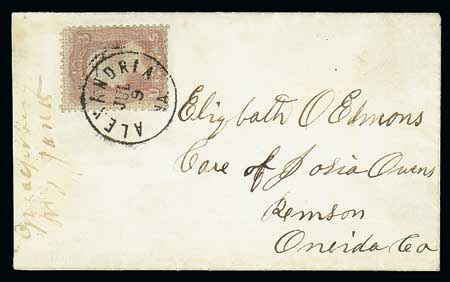 ALEXANDRIA VA
JUL
9
3 3
Elizbath O Edmons
Care of Josia Owens
Remson
Oneida Co